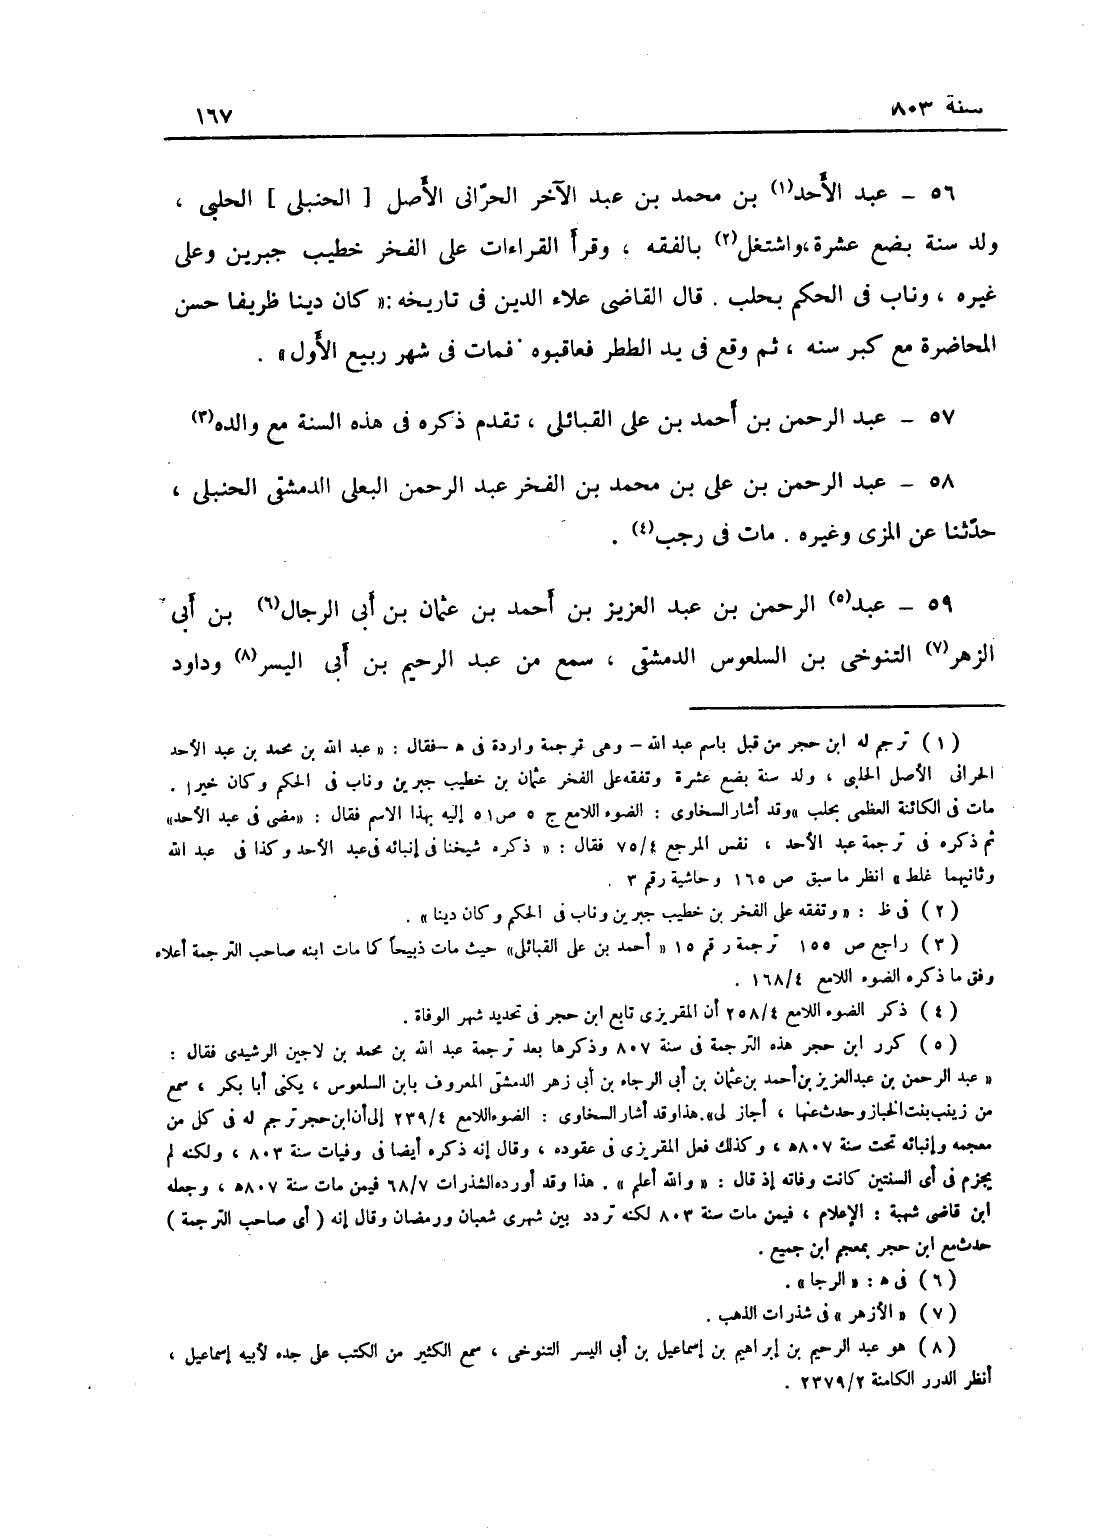 سنة ٨٠٣
١٦٧
٥٦ ــ عبد الأَحد(١) بن محمد بن عبد الآخر الحرّانى الأَصل [ الحنبلى ] الحلبى ،
ولد سنة بضع عشرة،واشتغل(٢) بالفقه ، وقرأَ القراءات على الفخر خطيب جبرين وعلى
غيره ، وناب فى الحكم بحلب . قال القاضى علاء الدين فى تاريخه :« كان دينا ظريفا حسن
المحاضرة مع كبر سنه ، ثم وقع فى يد الططر فعاقبوه فمات فى شهر ربيع الأَول» .
٥٧ ــ عبد الرحمن بن أَحمد بن على القبائلى ، تقدم ذكره فى هذه السنة مع والده(٣)
٥٨ ــ عبد الرحمن بن على بن محمد بن الفخر عبد الرحمن البعلى الدمشقى الحنبلى ،
حدّثنا عن المزى وغيره . مات فى رجب(٤) .
٥٩ ــ عبد(٥) الرحمن بن عبد العزيز بن أَحمد بن عثمان بن أَبى الرجال(٦) بن أَبى
الزهر(٧) التنوخى بن السلعوس الدمشقى ، سمع من عبد الرحيم بن أَبى اليسر(٨) وداود
( ١ ) ترجم له ابن حجر من قبل باسم عبد الله – وهى ترجمة واردة فى ه –فقال : « عبد الله بن محمد بن عبد الأحد
الحرانى الأصل الحلبى ، ولد سنة بضع عشرة وتفقه على الفخر عثمان بن خطيب جبرين وناب فى الحكم وكان خيرا .
مات فى الكائنة العظمى بحلب »وقد أشار السخاوى : الضوء اللامع ج ٥ ص٥١ إليه بهذا الاسم فقال : «مضى فى عبد الأحد»
ثم ذكره فى ترجمة عبد الأحد ، نفس المرجع ٧٥/٤ فقال : « ذكره شيخنا فى إنبائه فى عبد الأحد وكذا فى عبد الله
وثانيهما غلط » انظر ما سبق ص ١٦٥ وحاشية رقم ٣ .
( ٢ ) فى ظ : «وتفقه على الفخر بن خطيب جبرين وناب فى الحكم وكان دينا» .
( ٣ ) راجع ص ١٥٥ ترجمة رقم ١٥ « أحمد بن على القبائلى» حيث مات ذبيحاً كما مات ابنه صاحب الترجمة أعلاه
وفق ما ذكره الضوء اللامع ١٦٨/٤ .
( ٤ ) ذكر الضوء اللامع ٢٥٨/٤ أن المقريزى تابع ابن حجر فى تحديد شهر الوفاة .
( ٥ ) كرر ابن حجر هذه الترجمة فى سنة ٨٠٧ وذكرها بعد ترجمة عبد الله بن محمد بن لاجين الرشيدى فقال :
« عبد الرحمن بن عبدالعزيز بن أحمد بن عثمان بن أبى الرجاء بن أبى زهر الدمشقى المعروف بابن السلعوس ، يكنى أبا بكر ، سمع
من زينب بنت الخباز وحدث عنها ، أجاز لى».هذا وقد أشار السخاوى : الضوء اللامع ٢٣٩/٤ إلى أن ابن حجر ترجم له فى كل من
معجمه وإنبائه تحت سنة ٨٠٧ه ، وكذلك فعل المقريزى فى عقوده ، وقال إنه ذكره أيضا فى وفيات سنة ٨٠٣ ، ولكنه لم
يجزم فى أى السنتين كانت وفاته إذ قال : « والله أعلم » . هذا وقد أورده الشذرات ٦٨/٧ فيمن مات سنة ٨٠٧ه ، وجعله
ابن قاضى شهبة : الإعلام ، فيمن مات سنة ٨٠٣ لكنه تردد بين شهرى شعبان ورمضان وقال إنه ( أى صاحب الترجمة )
حدث مع ابن حجر بمعجم ابن جميع .
( ٦ ) فى ه : « الرجا » .
( ٧ ) « الأزهر » فى شذرات الذهب .
( ٨ ) هو عبد الرحيم بن إبراهيم بن إسماعيل بن أبى اليسر التنوخى ، سمع الكثير من الكتب على جده لأبيه إسماعيل ،
أنظر الدرر الكامنة ٢٣٧٩/٢ .